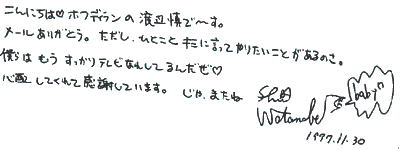 こんにちは♡ホフディランの渡辺慎で〜す。
メールありがとう。ただし、ひとことキミに言ってやりたいことがあるのさ。
僕らはもうすっかりテレビなれしてるんだぜ♡
心配してくれて感謝しています。じゃ、またね
Shin
Watanabe
baby"
1997.11.30